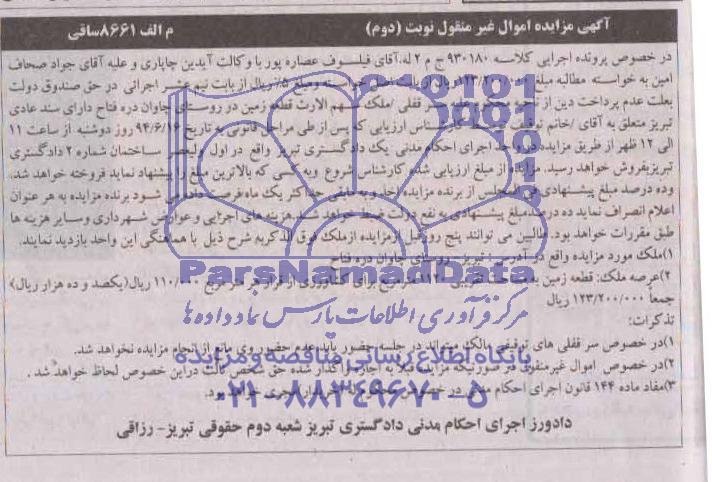 آگهی مزایده اموال غیر منقول نوبت (دوم) م الف ۸۶۶۱ساقی
در خصوص پرونده اجرایی کلاسه ۹۳۰۱۸۰ ج م ۲ له آقای فیلسوف عصاره پور با وکالت آیدین چاپاری و علیه آقای جواد صحاف
امین به خواسته مطالبه مبلغ ۱۲۳/۲۰۰/۰۰۰ ریال از بابت اصل خواسته و مبلغ ریال از بابت نیم عشر اجرائی در حق صندوق دولت
بعلت عدم پرداخت دین از ناحیه محکوم علیه سر قفلی /ملک سهم الارث قطعه زمین در روستای چاوان دره فتاح دارای سند عادی
تبریز متعلق به آقای /خانم توقیف کارشناس ارزیابی که پس از طی مراحل قانونی به تاریخ ۹۴/۶/۱۶ روز دوشنبه از ساعت ۱۱
الی ۱۲ ظهر از طریق مزایده در واحد اجرای احکام مدنی یک دادگستری تبریز واقع در اول ولیعصر ساختمان شماره ۲ دادگستری
تبریز بفروش خواهد رسید. مزایده از مبلغ ارزیابی شده کارشناس شروع و به کسی که بالاترین مبلغ را پیشنهاد نماید فروخته خواهد شد.
وده درصد مبلغ پیشنهادی فی المجلس از برنده مزایده اخذ و به مابقی حداکثر یک ماه فرصت داده می شود برنده مزایده به هر عنوان
اعلام انصراف نماید ده درصد مبلغ پیشنهادی به نفع دولت ضبط خواهد شد. هزینه های اجرایی و عوارض شهرداری وسایر هزینه ها
طبق مقررات خواهد بود. طالبین می توانند پنج روز قبل از مزایده از ملک فوق الذکر به شرح ذیل با هماهنگی این واحد بازدید نمایند.
۱)ملک مورد مزایده واقع در آدرس: تبریز- روستای چاوان دره فتاح
۲)عرصه ملک: قطعه زمین به مساحت تقریبی ۱۱۲۰ مترمربع برای کشاورزی از قرار هر متر مربع ۱۱۰/۰۰۰ ریال(یکصد و ده هزار ریال)
جمعاً ۱۲۳/۲۰۰/۰۰۰ ریال
تذکرات:
۱)در خصوص سر قفلی های توقیفی مالک میتواند در جلسه حضور یابد عدم حضور وی مانع از انجام مزایده نخواهد شد.
۲)در خصوص اموال غیرمنقول در صورتیکه مزایده قبلا به اجاره واگذار شده حق شخص ثالث دراین خصوص لحاظ خواهد شد.
۳)مفاد ماده ۱۴۴ قانون اجرای احکام مدنی در خصوص مجری خواهد بود.
دادورز اجرای احکام مدنی دادگستری تبریز شعبه دوم حقوقی تبریز- رزاقی
ParsNamadData
مرکز فرآوری اطلاعات پارس نماد داده ها
پایگاه اطلاع رسانی مناقصه و مزایده
۰۲۱-۸۸۳۴۹۶۷۰-۵